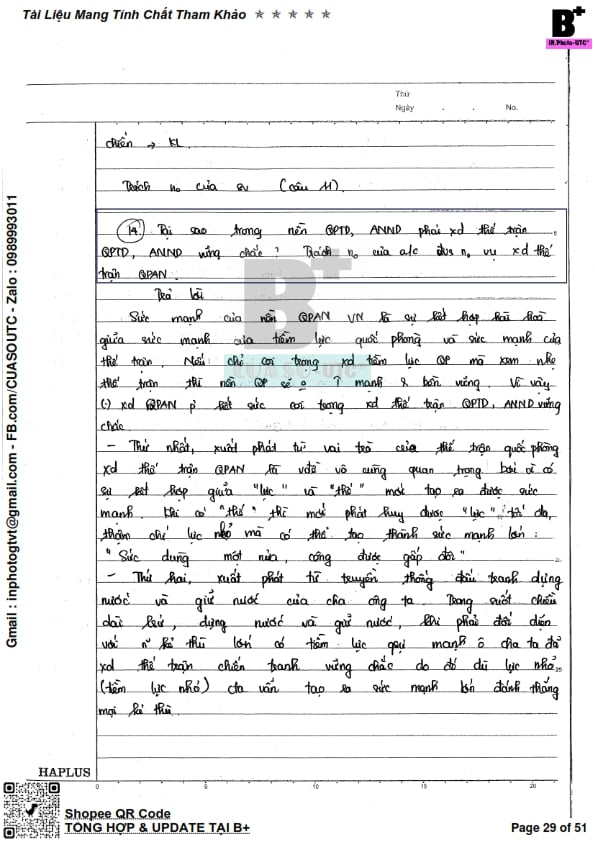 Tài Liệu Mang Tính Chất Tham Khảo ★ ★ ★ ★ ★
B+
IN.Photo-UTC
Thứ
Ngày . . No.
chiến → KL
Trách no của sv (câu 11).
14. Tại sao trong nền QPTD, ANND phải xd thế trận
QPTD, ANND vững chắc? Trách no của a/c đvs no vụ xd thế
trận QPAN.
Trả lời
Sức mạnh của nền QPAN VN là sự kết hợp hài hoà
giữa sức mạnh của tiềm lực quốc phòng và sức mạnh của
thế trận. Nếu chỉ coi trọng xd tiềm lực QP mà xem nhẹ
thế trận thì nền QP sẽ o mạnh & bền vững. Vì vậy
(:) xd QPAN p' hết sức coi trọng xd thế trận QPTD, ANND vững
chắc.
- Thứ nhất, xuất phát từ vai trò của thế trận quốc phòng
xd thế trận QPAN là vđề vô cùng quan trọng bởi vì có
sự kết hợp giữa "lực" và "thế" mới tạo ra được sức
mạnh. Khi có "thế" thì mới phát huy được "lực" tối đa,
thậm chí lực nhỏ mà có thể tạo thành sức mạnh lớn:
"Sức dùng một nửa, công được gấp đôi"
- Thứ hai, xuất phát từ truyền thống đấu tranh dựng
nước và giữ nước của cha ông ta. Trong suốt chiều
dài lsử, dựng nước và giữ nước, khi phải đối diện
với n~ kẻ thù lớn có tiềm lực quy mạnh ô cha ta đã
xd thế trận chiến tranh vững chắc do đó dù lực nhỏ
(tiềm lực nhỏ) cta vẫn tạo ra sức mạnh lớn đánh thắng
mọi kẻ thù.
B+
CUA SO UTC
Gmail : inphotogtvt@gmail.com - FB.com/CUASOUTC - Zalo : 0989993011
20
25
HAPLUS
0 5 10 15 20
Shopee QR Code
TỔNG HỢP & UPDATE TẠI B+
Page 29 of 51